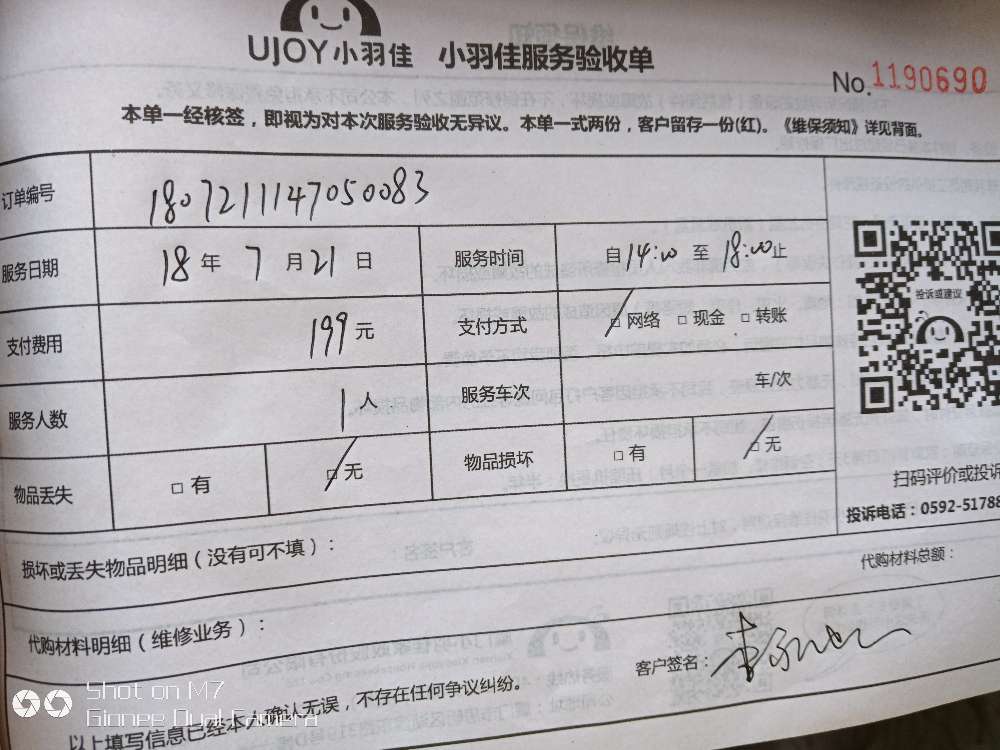 UJOY小羽佳 小羽佳服务验收单
No.1190690
本单一经核签，即视为对本次服务验收无异议。本单一式两份，客户留存一份(红)。《维保须知》详见背面。
订单编号 1807211147050083
服务日期 18年 7月21日 服务时间 自14:00至18:00止
支付费用 199元 支付方式 □网络 □现金 □转账
服务人数 1人 服务车次 车/次
物品丢失 □有 □无 物品损坏 □有 □无
投诉或建议
扫码评价或投诉
投诉电话：0592-51788
损坏或丢失物品明细（没有可不填）：
代购材料明细（维修业务）：
代购材料总额：
客户签名：
以上填写信息已经本人确认无误，不存在任何争议纠纷。
Shot on M7
Gionee Dual Camera